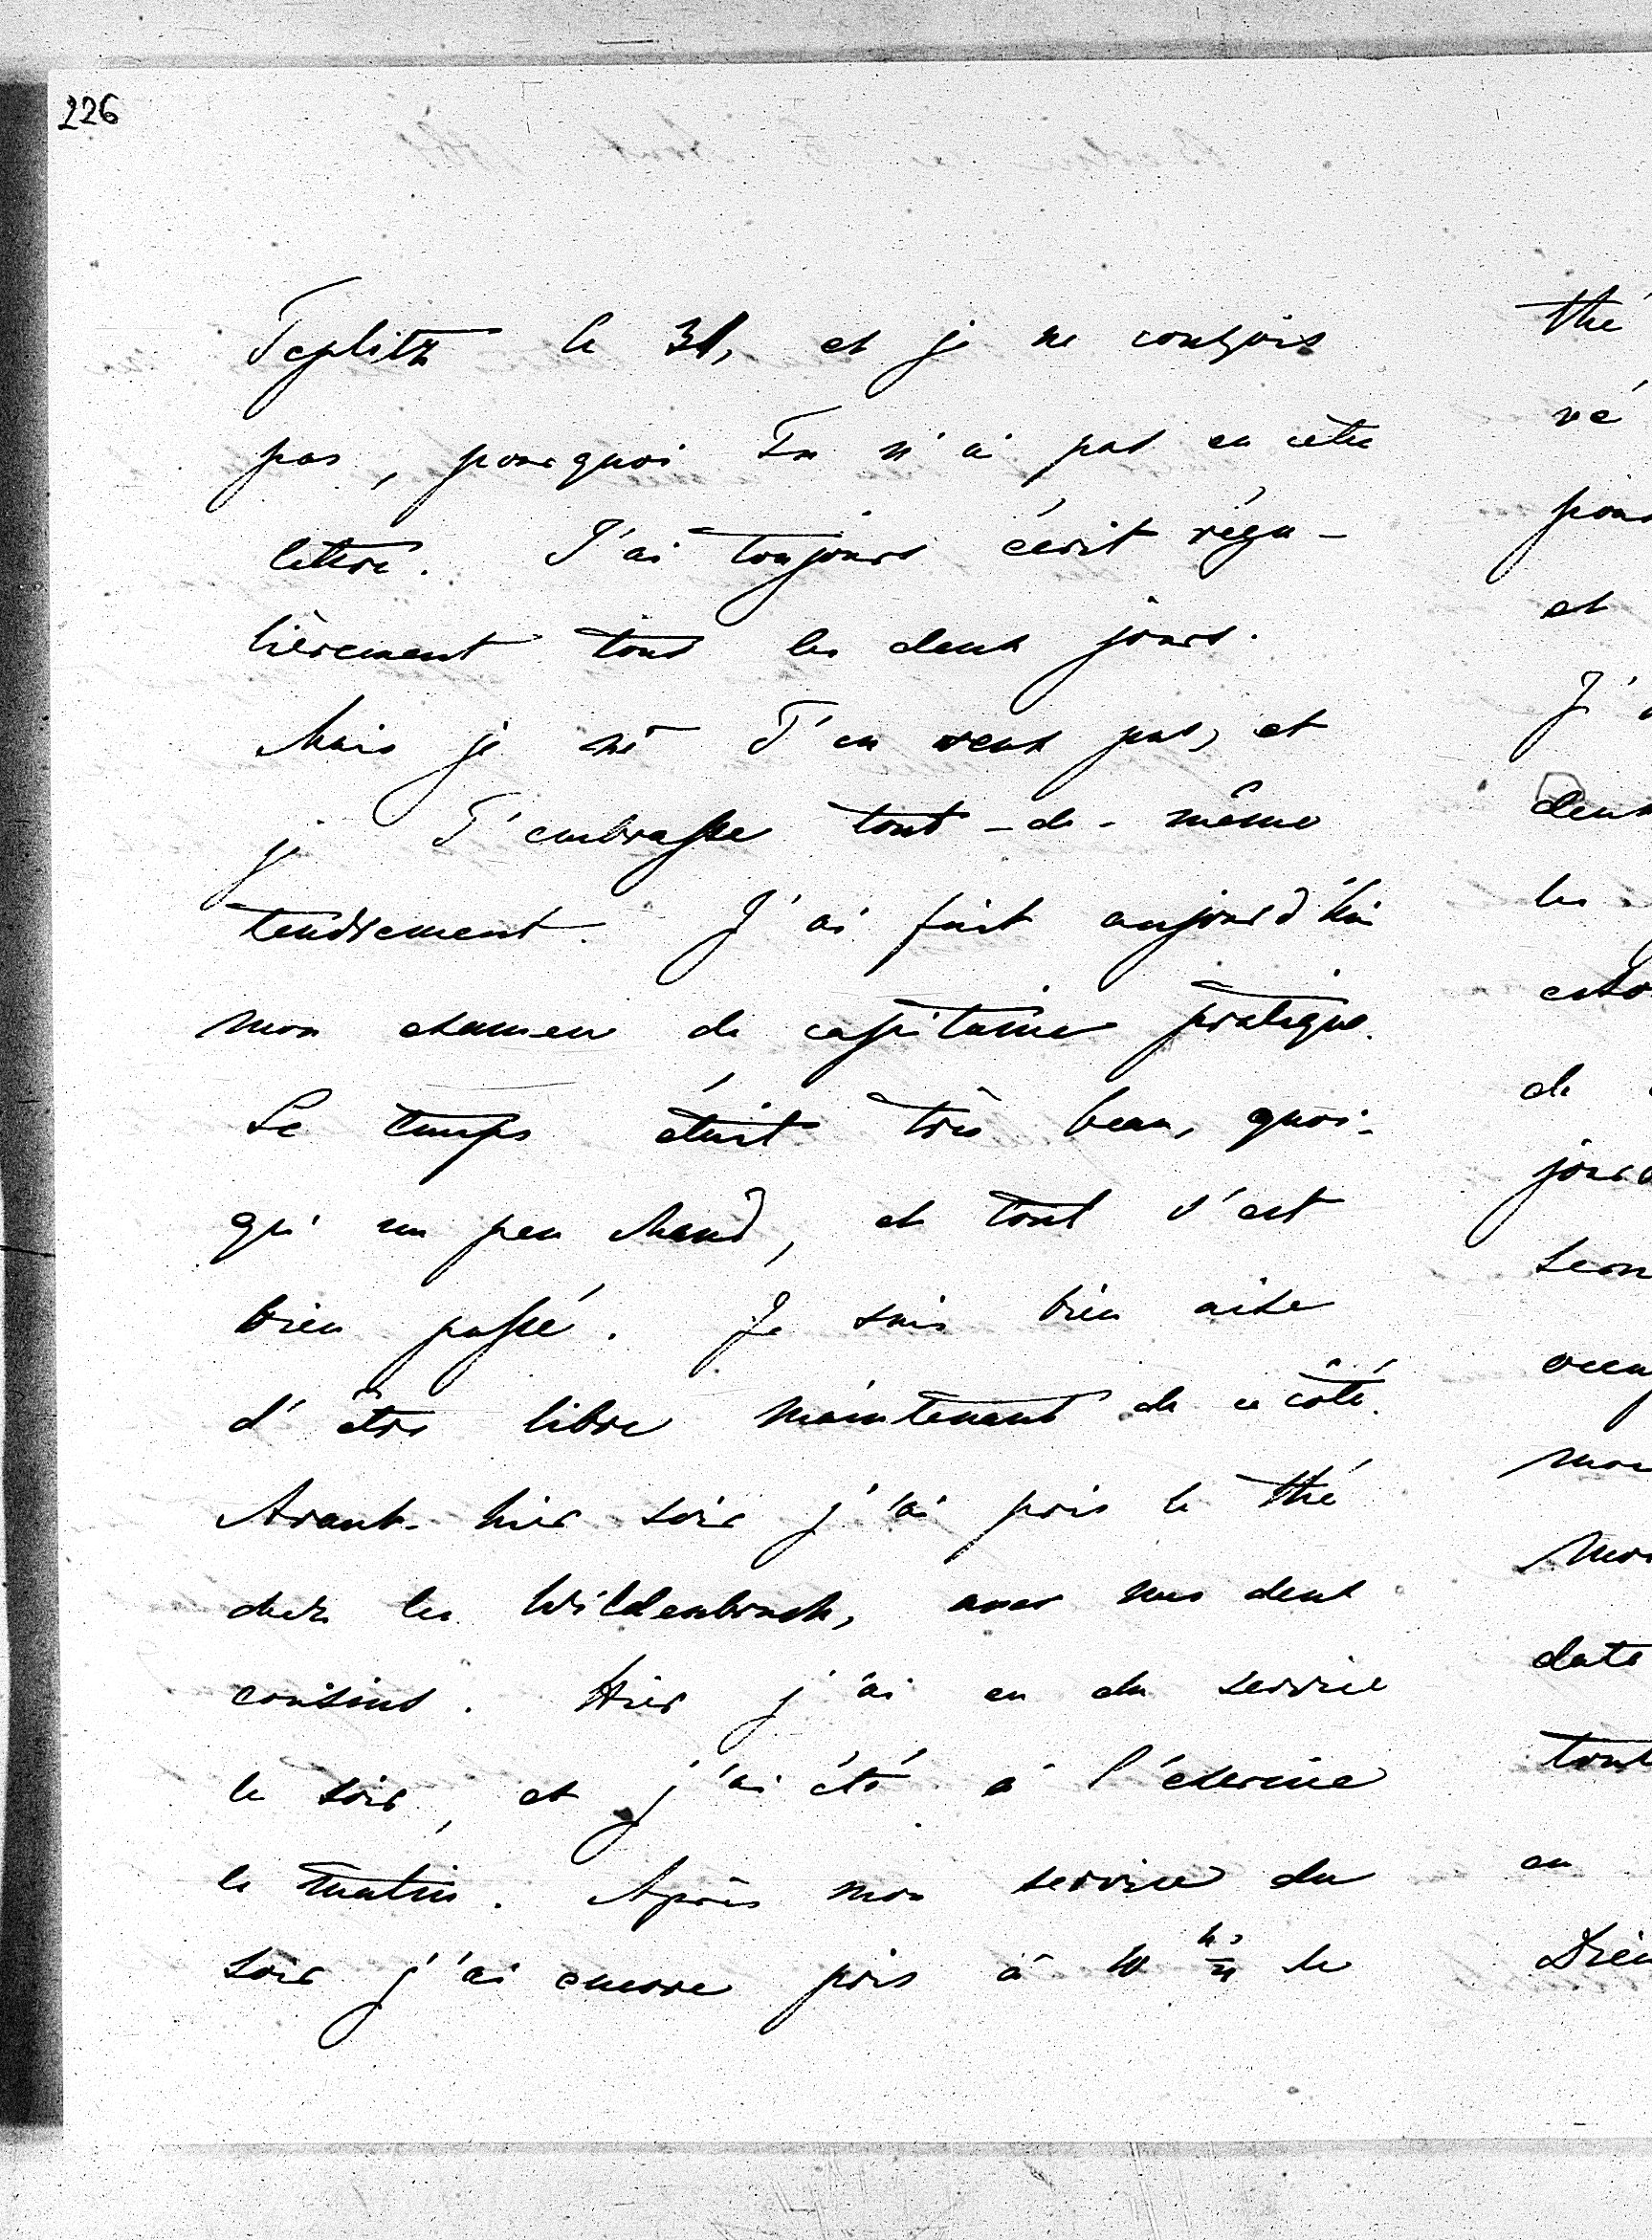 226
Teplitz le 31, et je ne conçois
pas, pourquoi Tu n'a pas eu cette
lettre. J'ai toujours écrit régu-
lièrement tous les deux jours.
Mais je ne T'en veux pas, et
je T'embrasse tout-de-même
tendrement. J'ai fait aujourd'hui
mon examen de capitaine pratique.
Le temps était très beau, quoi-
qu'un peu chaud, et tout s'est
bien passé. Je suis bien aise
d'être libre maintenant de ce côté.
Avant-hier soir j'ai pris le thé
chez les Wildenbruch, avec mes deux
cousins. Hier j'ai eu du service
le soir, et j'ai été à l'exercice
le matin. Après mon service du
soir j'ai encore pris à 10 h. le
thé
vé
et
J'
deux
les
de
date
tout
en